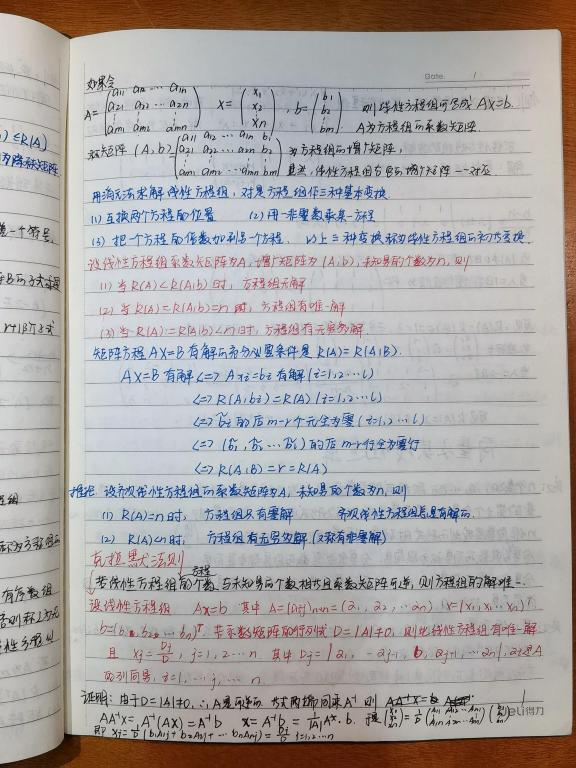 Date. /
如果令
A=(a11 a12 ⋯ a1n
a21 a22 ⋯ a2n
⋮
am1 am2 ⋯ amn) x=(x1
x2
⋮
xn), b=(b1
b2
⋮
bm) 则线性方程组可写成 Ax=b.
A为方程组的系数矩阵.
称矩阵 (A,b)=(a11 a12 ⋯ a1n b1
a21 a22 ⋯ a2n b2
⋮
am1 am2 ⋯ amn bm) 为方程组的增广矩阵,
显然,线性方程组与它的增广矩阵一一对应
用消元法求解线性方程组,对是方程组作三种基本变换
(1) 互换两个方程的位置 (2) 用一非零数乘某一方程
(3) 把一个方程的倍数加到另一个方程. 以上三种变换称为线性方程组的初等变换.
设线性方程组系数矩阵为A,增广矩阵为(A,b),未知量的个数为n,则
(1) 当R(A)<R(A,b)时,方程组无解
(2) 当R(A)=R(A,b)=n时,方程组有唯一解
(3) 当R(A)=R(A,b)<n时,方程组有无穷多解.
矩阵方程AX=B有解的充分必要条件是R(A)=R(A,B).
AX=B有解<=>Axi=bi有解(i=1,2⋯l)
<=>R(A,bi)=R(A)(i=1,2⋯l)
<=>b̃i的后m-r个元全为零(i=1,2,⋯l)
<=>(b̃1,b̃2⋯b̃l)的后m-r行全为零行
<=>R(A,B)=r=R(A)
推论 设齐次线性方程组的系数矩阵为A,未知量的个数为n,则
(1) R(A)=n时, 方程组只有零解 齐次线性方程组总是有解的.
(2) R(A)<n时, 方程组有无穷多解(又称有非零解)
克拉默法则
若线性方程组的方程个数与未知量个数相等且系数矩阵可逆,则方程组的解唯一.
设线性方程组 Ax=b 其中A=(aij)n×n=(a1,a2,⋯an) x=(x1,x2⋯xn)T
b=(b1,b2,⋯bn)T. 若系数矩阵的行列式D=|A|≠0,则此线性方程组有唯一解
且 xj=Dj/D, j=1,2⋯n 其中Dj=|a1,⋯aj-1,b,aj+1,⋯an|,aj是A
的列向量,j=1,⋯,n
证明:由于D=|A|≠0,∴A是可逆的.
AA⁻¹x=A⁻¹(Ax)=A⁻¹b x=A⁻¹b=1/|A|A*·b.
即 xj=1/D(b1A1j+b2A2j+⋯bnAnj)=Dj/D j=1,2⋯n
deli得力
≤R(A)
一个符号,
有序数组